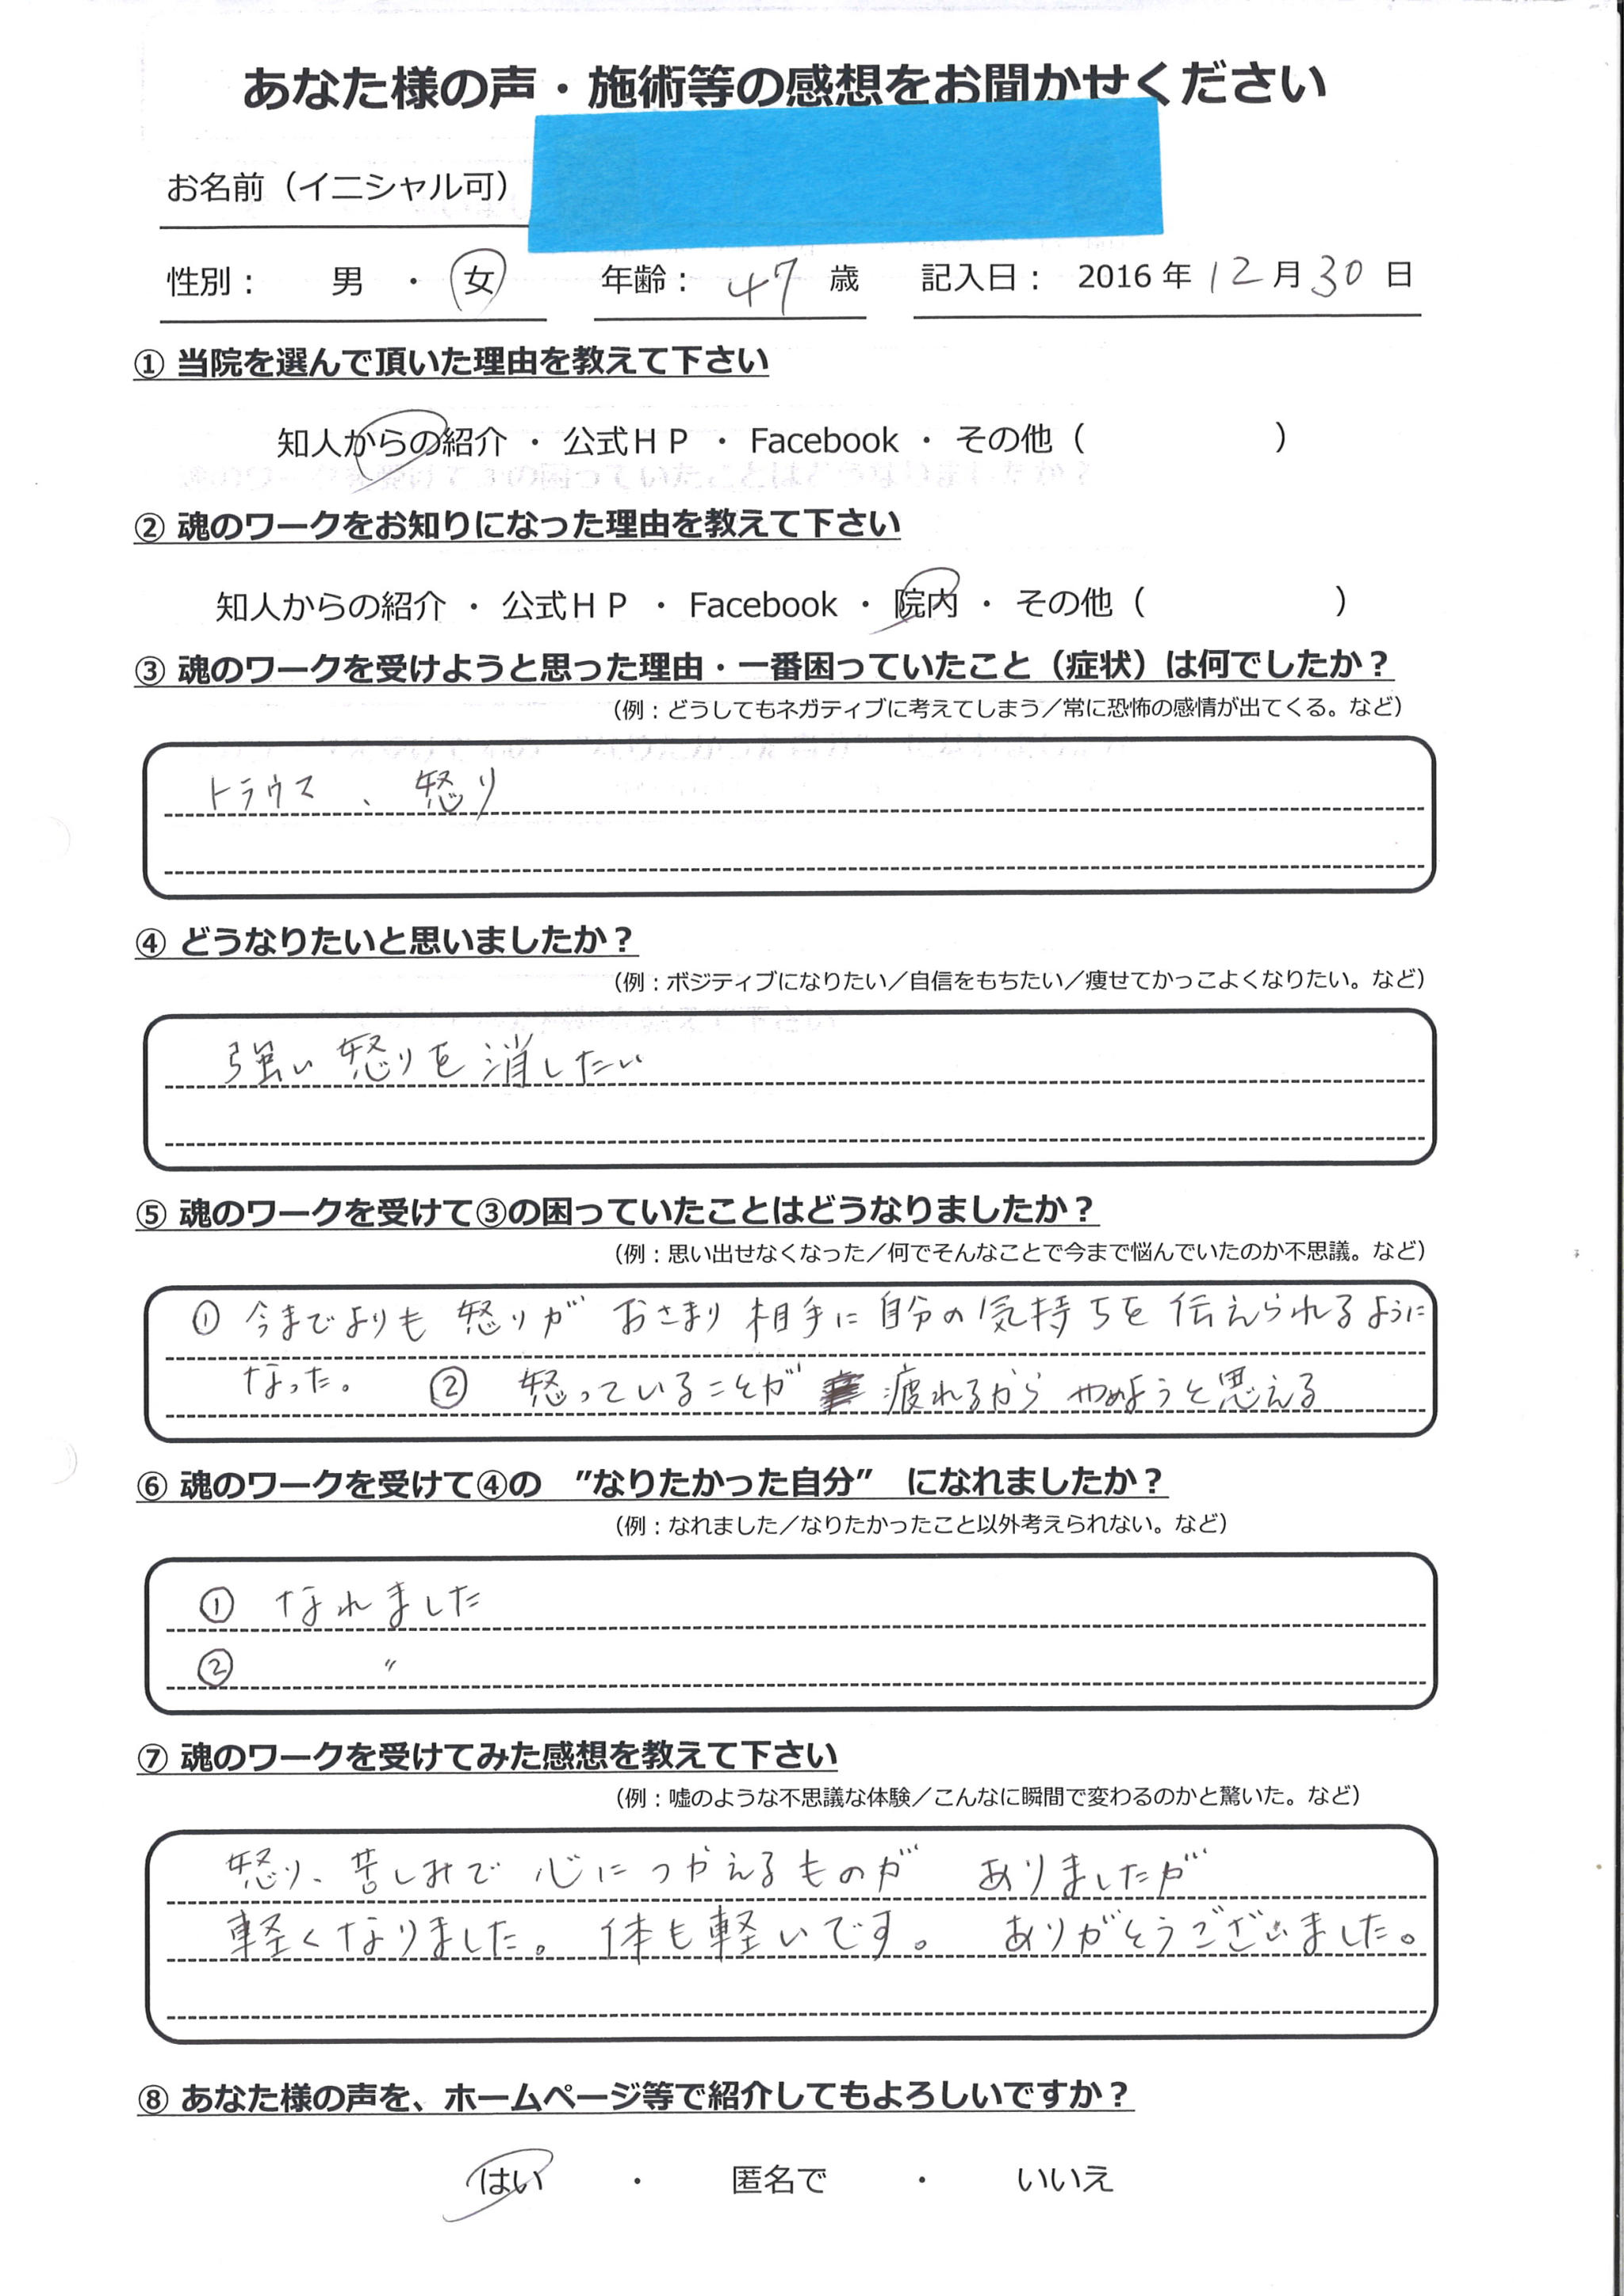 あなた様の声・施術等の感想をお聞かせください
お名前（イニシャル可）
性別： 男 ・ 女 年齢： 47 歳 記入日： 2016 年 12 月 30 日
① 当院を選んで頂いた理由を教えて下さい
知人からの紹介 ・ 公式ＨＰ ・ Facebook ・ その他（ ）
② 魂のワークをお知りになった理由を教えて下さい
知人からの紹介 ・ 公式ＨＰ ・ Facebook ・ 院内 ・ その他（ ）
③ 魂のワークを受けようと思った理由・一番困っていたこと（症状）は何でしたか？
（例：どうしてもネガティブに考えてしまう／常に恐怖の感情が出てくる。など）
トラウス、怒り
④ どうなりたいと思いましたか？
（例：ポジティブになりたい／自信をもちたい／痩せてかっこよくなりたい。など）
強い怒りを消したい
⑤ 魂のワークを受けて③の困っていたことはどうなりましたか？
（例：思い出せなくなった／何でそんなことで今まで悩んでいたのか不思議。など）
① 今までよりも 怒りが おさまり 相手に 自分の気持ちを 伝えられるように
なった。 ② 怒っていることが 疲れるから やめようと思える
⑥ 魂のワークを受けて④の ”なりたかった自分” になれましたか？
（例：なれました／なりたかったこと以外考えられない。など）
① なれました
② 〃
⑦ 魂のワークを受けてみた感想を教えて下さい
（例：嘘のような不思議な体験／こんなに瞬間で変わるのかと驚いた。など）
怒り、苦しみで 心につかえるものが ありましたが
軽くなりました。 体も軽いです。 ありがとうございました。
⑧ あなた様の声を、ホームページ等で紹介してもよろしいですか？
はい ・ 匿名で ・ いいえ